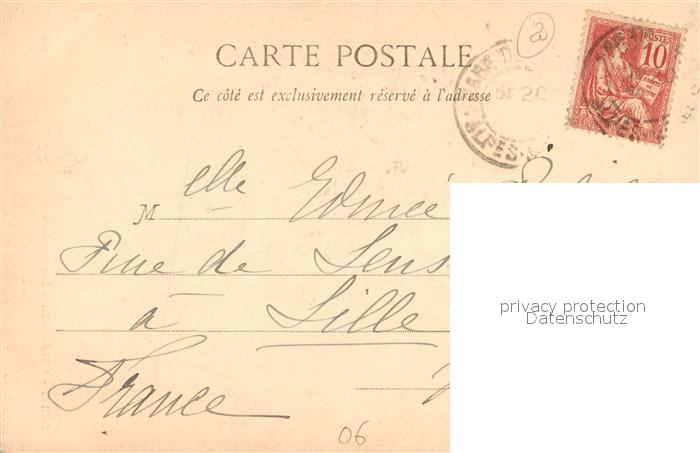 CARTE POSTALE
Ce côté est exclusivement réservé à l'adresse
POSTES
10
20
ALPES
Melle Edmée
Rue de Sens
à Lille
France
06
privacy protection
Datenschutz